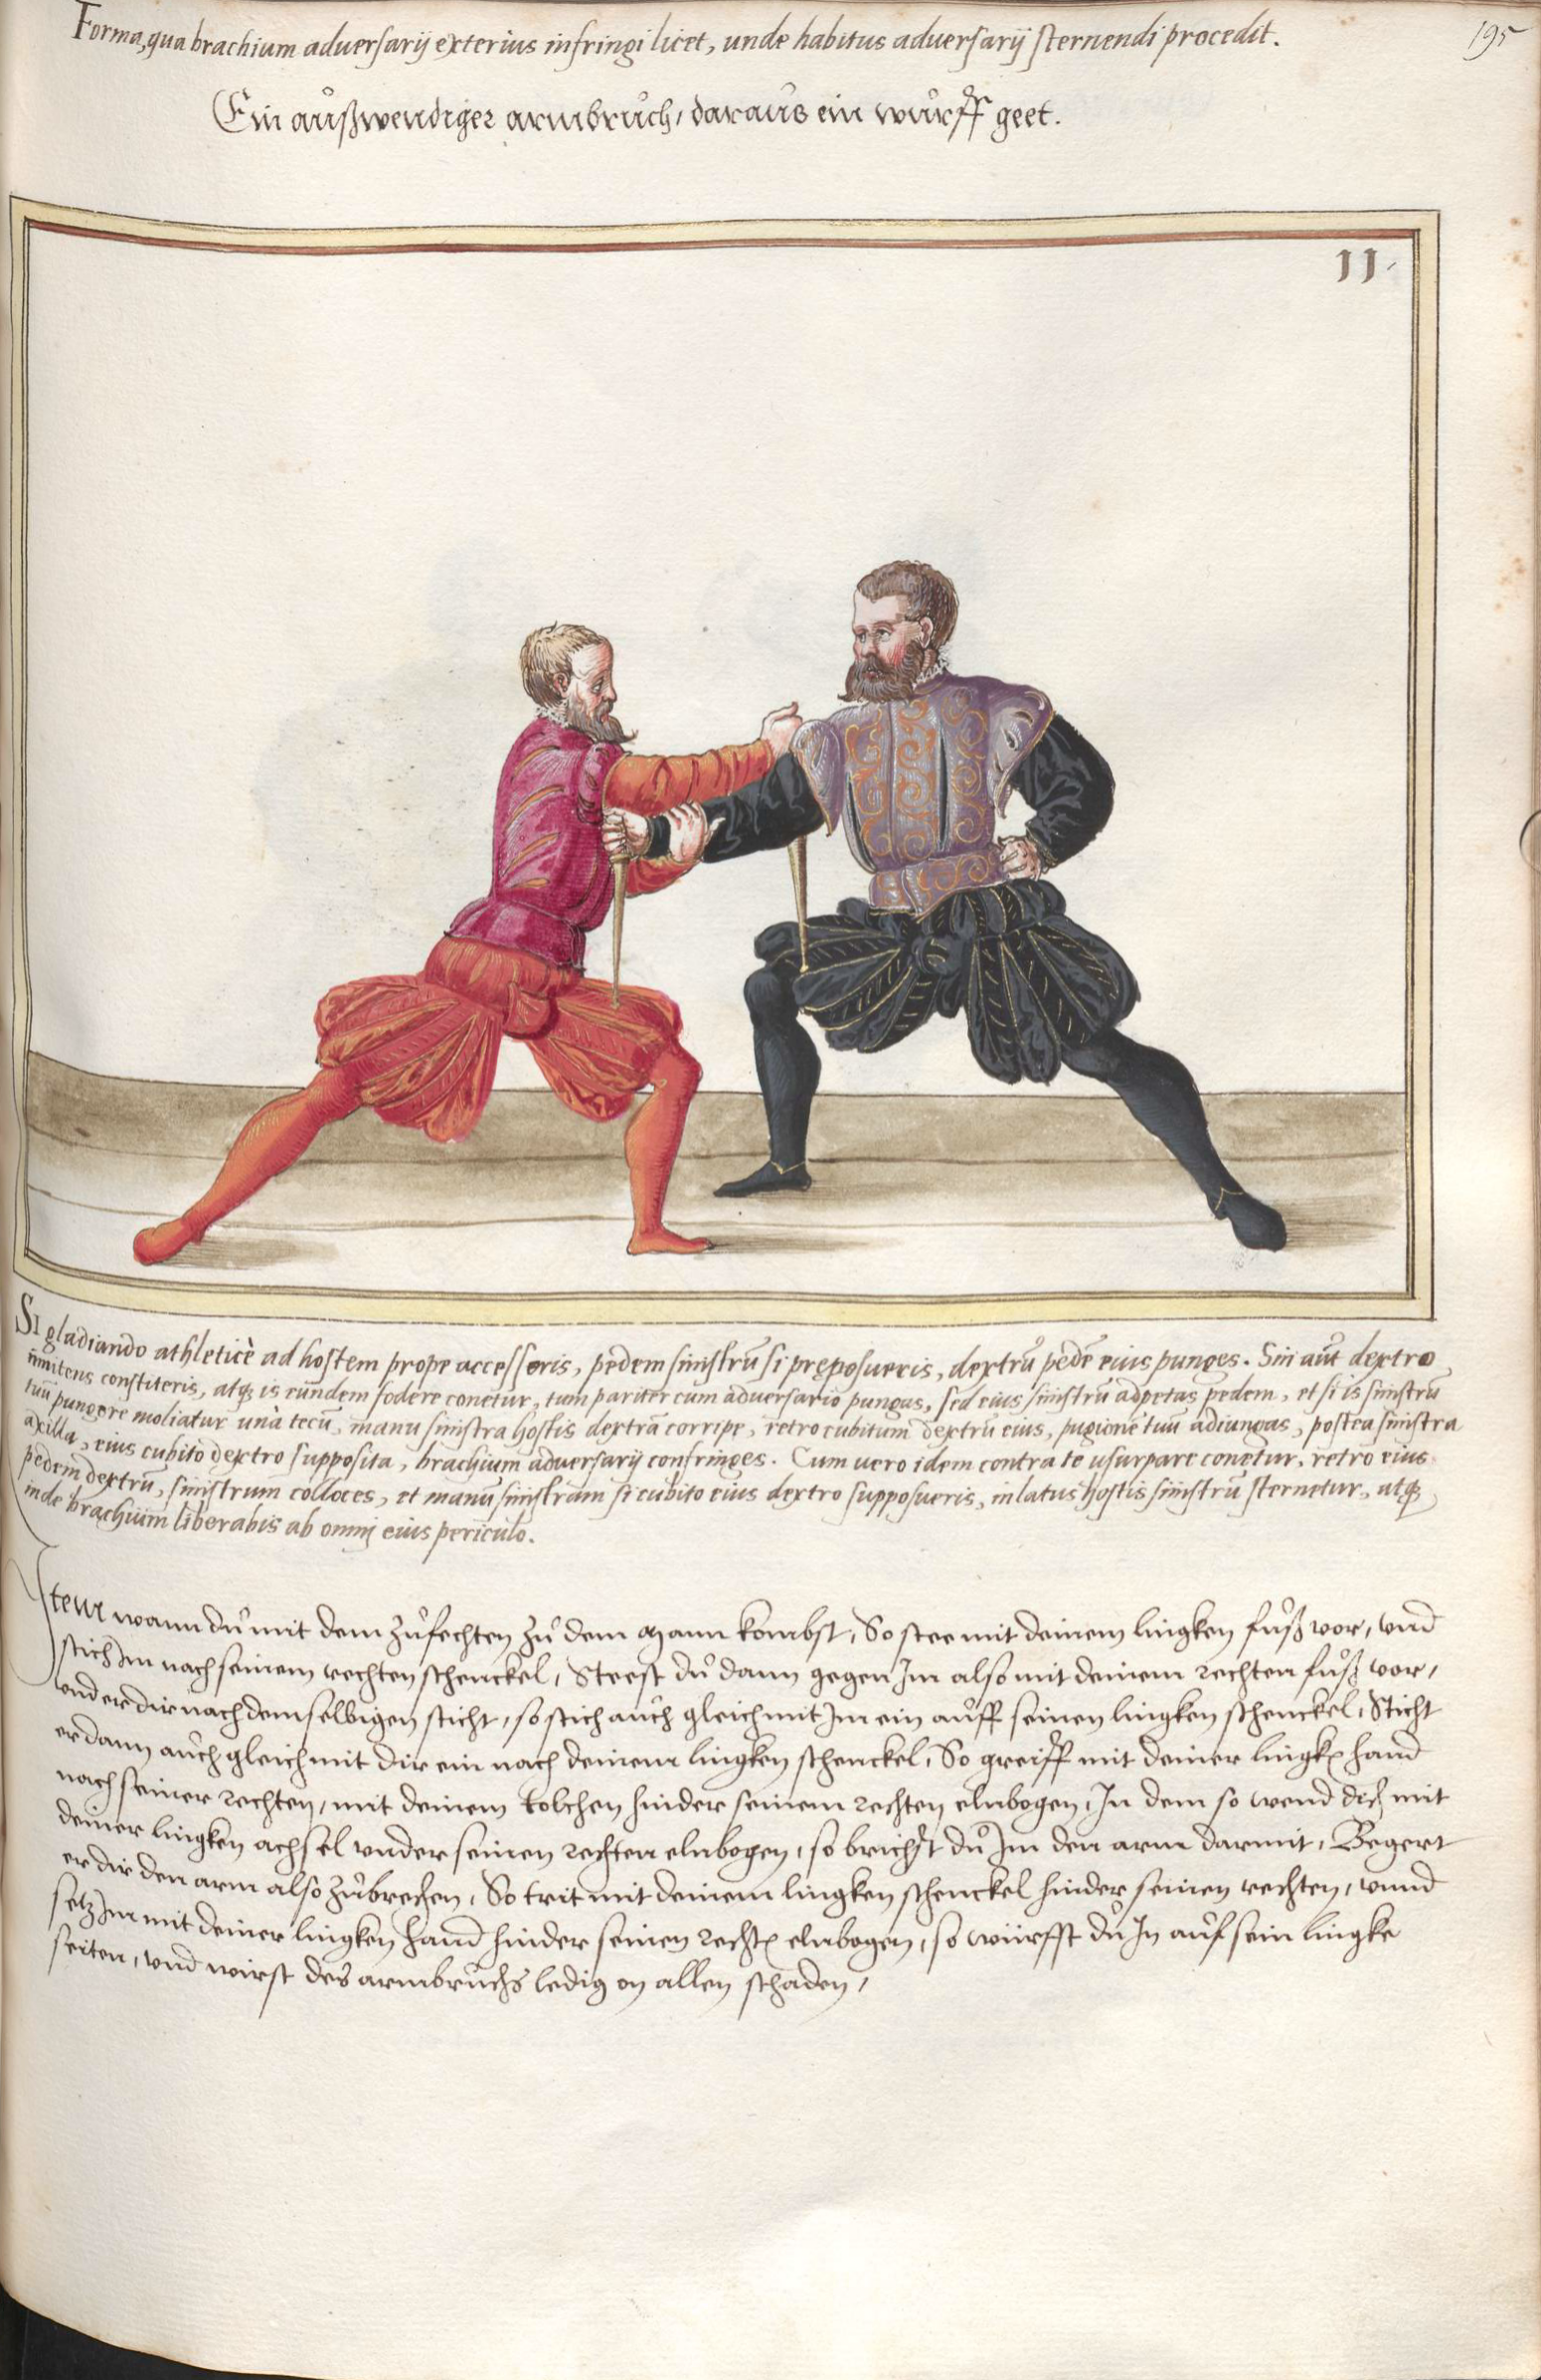 Forma, qua brachium adversarij exterius infringi licet, unde habitus adversarij sternendi procedit.
195
Ein außwendiger armbruch, daraus ein wurff geet.
11.
Si gladiando athleticè ad hostem prope accesseris, pedem sinistrũ si pręposueris, dextrũ pedẽ eius punges. Sin aũt dextro
innitens constiteris, atq; is eundem fodere conetur, tum pariter cum adversario pungas, sed eius sinistrũ adpetas pedem, et si is sinistrũ
tuũ pungere moliatur unà tecũ, manu sinistra hostis dextrã corripe, retro cubitum dextrũ eius, pugionẽ tuũ adiungas, postea sinistra
axilla, eius cubito dextro supposita, brachium adversarij confringes. Cum uero idem contra te usurpare conetur, retro eius
pedem dextrũ, sinistrum colloces, et manũ sinistram si cubito eius dextro supposueris, in latus hostis sinistrũ sternetur, atq;
inde brachium liberabis ab omni eius periculo.
Item wann du mit dem zufechten zu dem Mann kombst, So stee mit deinem lingken fuß vor, vnd
stich Im nach seinem rechten schenckel, Steest du dann gegen Im also mit deinem rechten fuß vor,
vnd er dir nach demselbigen sticht, so stich auch gleich mit Im ein auff seinen lingken schenckel, Sticht
er dann auch gleich mit dir ein nach deinem lingken schenckel, So greiff mit deiner lingken hand
nach seiner rechten, mit deinem tolchen hinder seinem rechten elnbogen, In dem so wend dich mit
deiner lingken achsel vnder seinen rechten elnbogen, so brichst du Im den arm darmit, Begert
er dir den arm also zubrechen, So trit mit deinem lingken schenckel hinder seinen rechten, vnnd
setz Im mit deiner lingken hand hinder seinen rechten elnbogen, so würffst du In auf sein lingke
seiten, vnd wirst des armbruchs ledig on allen schaden,